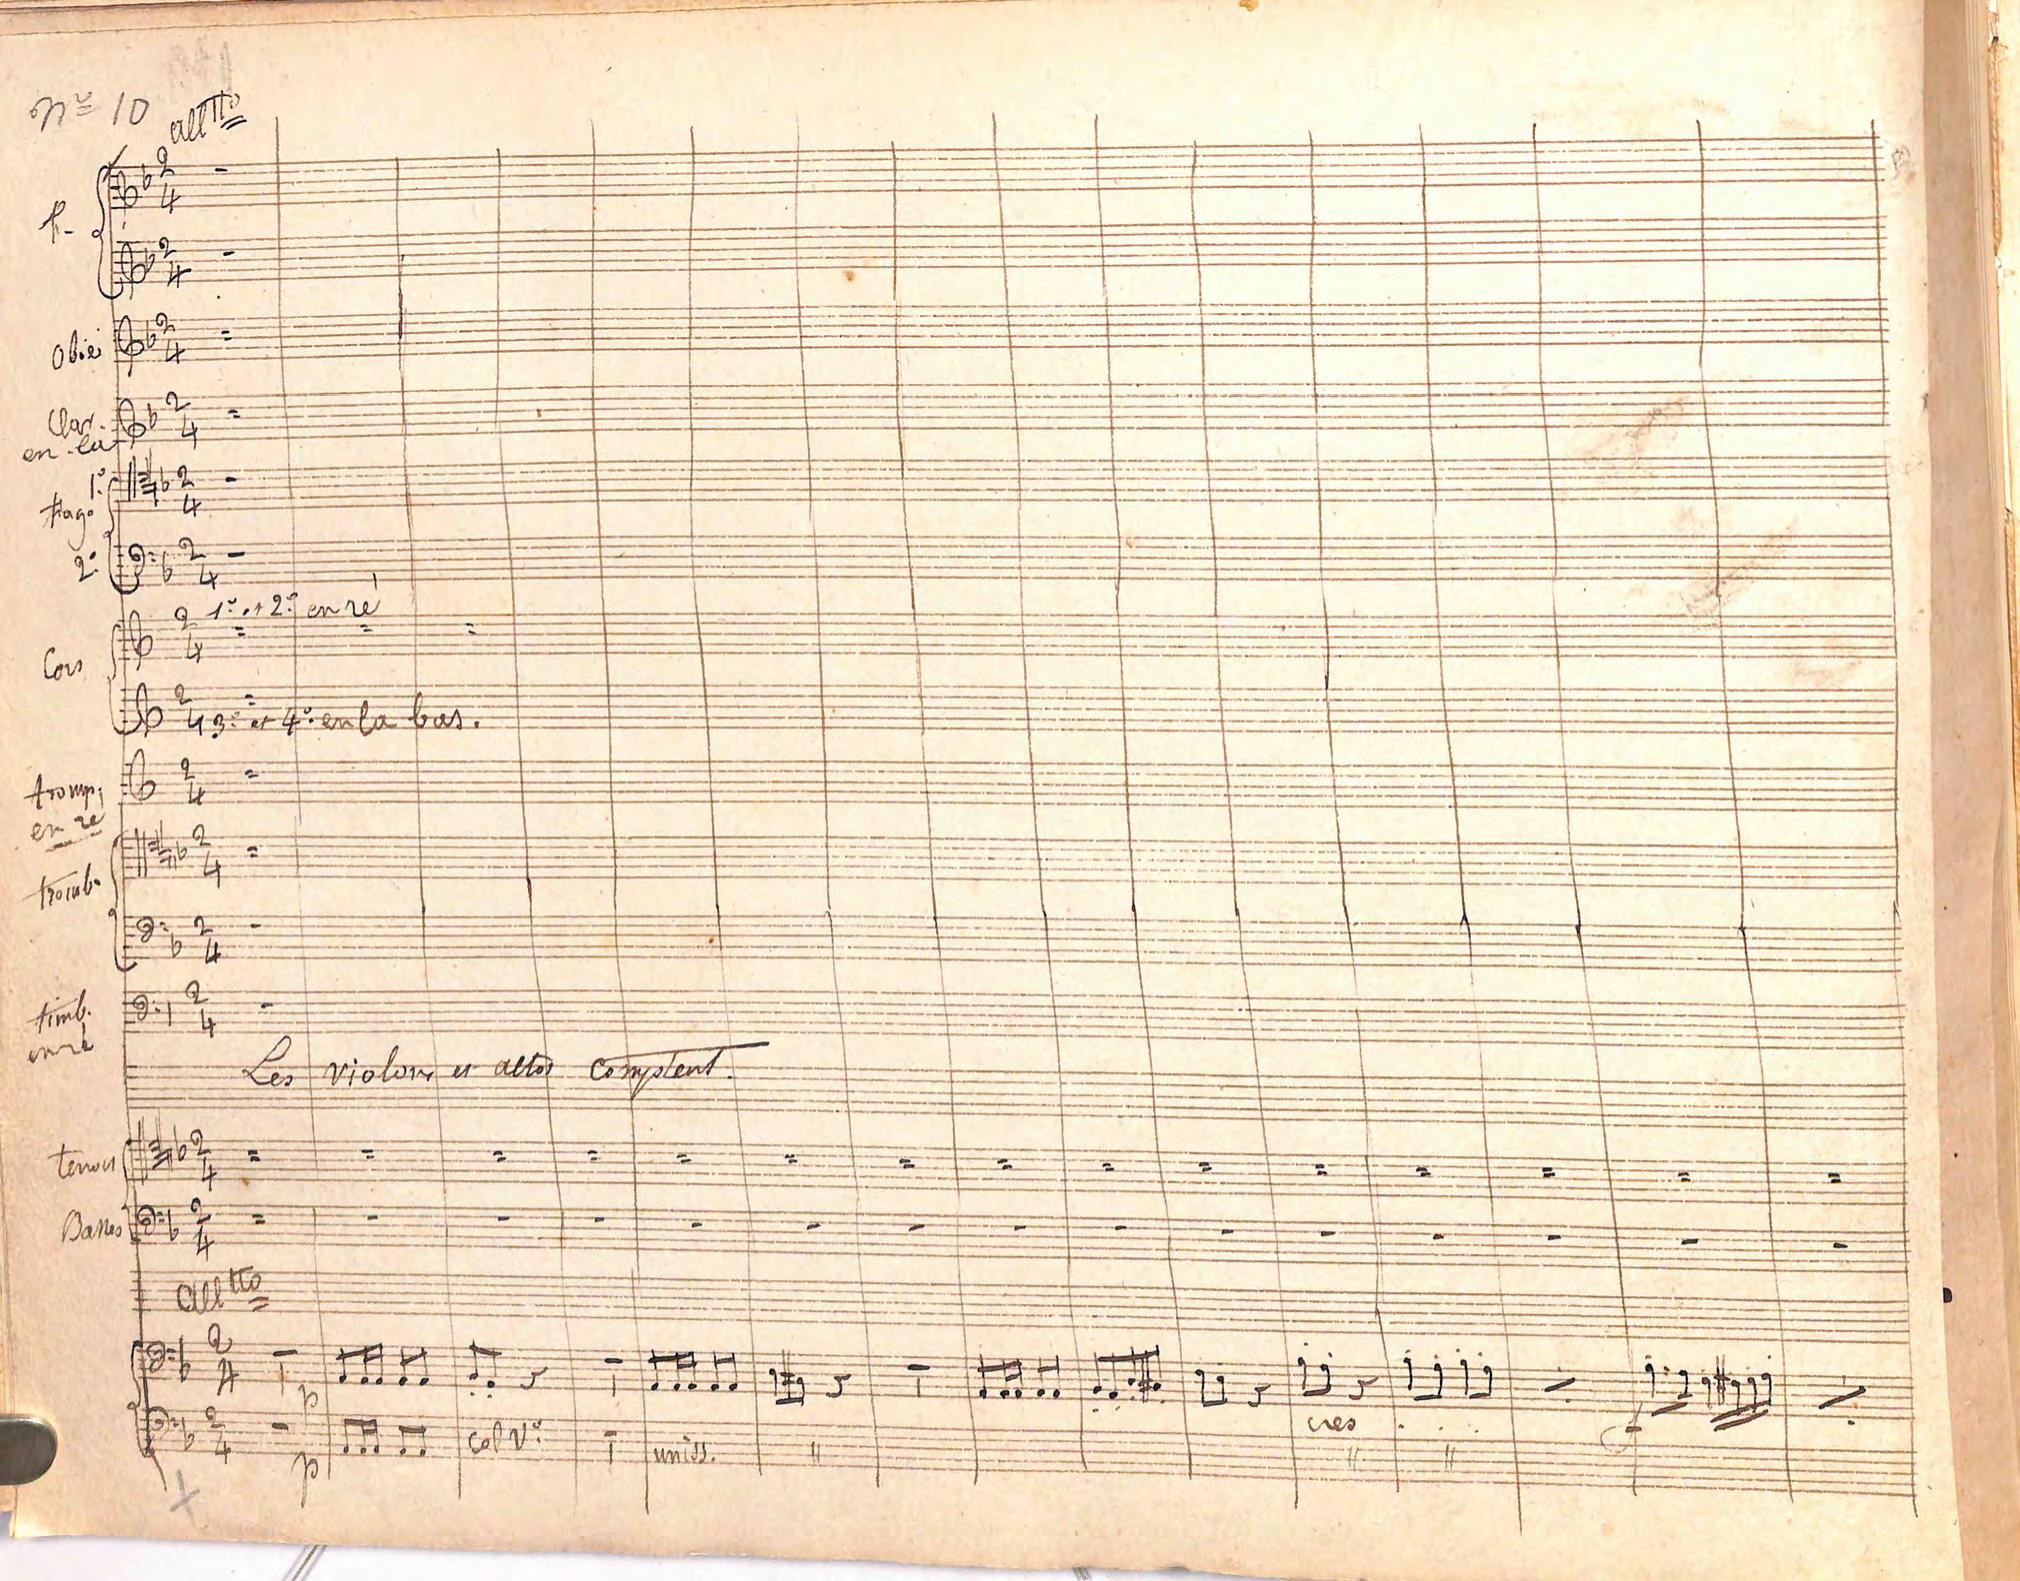 nº 10
all tto
fl.
Oboes
Clar.
en la
1º
fag.
2º
1º et 2º en ré
Cors
3º et 4º en la bas.
tromp.
en re
tromb.
timb.
en ré
Les violons et altos comptent.
tenors
Basses
all tto
p
cres . . .
f
p
col Vº
uniss.